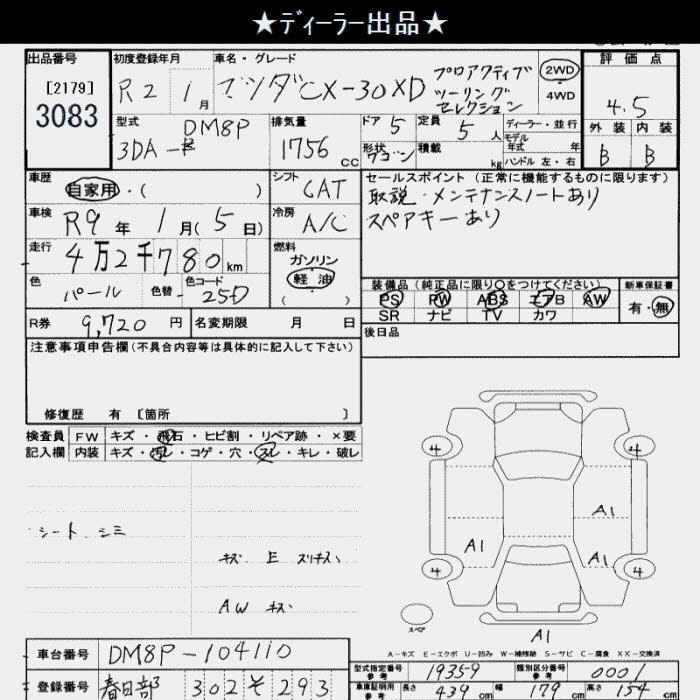 ★ディーラー出品★
出品番号 初度登録年月 車名・グレード 評価点
[2179]
3083
R2 1月 マツダCX-30XD プロアクティブ ツーリング セレクション
2WD
4WD
4.5
外装 内装
B B
型式 DM8P 排気量 ドア 5 定員 5人 ディーラー・並行
3DA- 1756cc 形状 ワゴン 積載 kg モデル年式 年
ハンドル 左・右
車歴 自家用・( ) シフト CAT
セールスポイント(正常に機能するものに限ります)
取説・メンテナンスノートあり
スペアキーあり
車検 R9年 1月(5日) 冷房 A/C
走行 4万2千780km 燃料 ガソリン 軽油 ( )
色 パール 色替 - 色コード 25D
装備品(純正品に限り○をつけてください) 新車保証書
PS PW ABS エアB AW 有・無
SR ナビ TV カワ
R券 9,720円 名変期限 月 日
後日品
注意事項申告欄(不具合内容等は具体的に記入して下さい)
修復歴 有 [箇所 ]
検査員 FW キズ・飛石・ヒビ割・リペア跡・×要
記入欄 内装 キズ・汚レ・コゲ・穴・スレ・キレ・破レ
シート、シミ
キズ E スリキズ、
AW キズ
4 4
A1
A1 A1
4 4
スペア
A1
A-キズ E-エクボ U-凹み W-補修跡 S-サビ C-腐食 XX-交換済
車台番号 DM8P-104110
型式指定番号 参考 19359 類別区分番号 参考 0001
登録番号 春日部 302 そ 293
車庫証明用 参考 長さ 439cm 幅 179cm 高さ 154cm